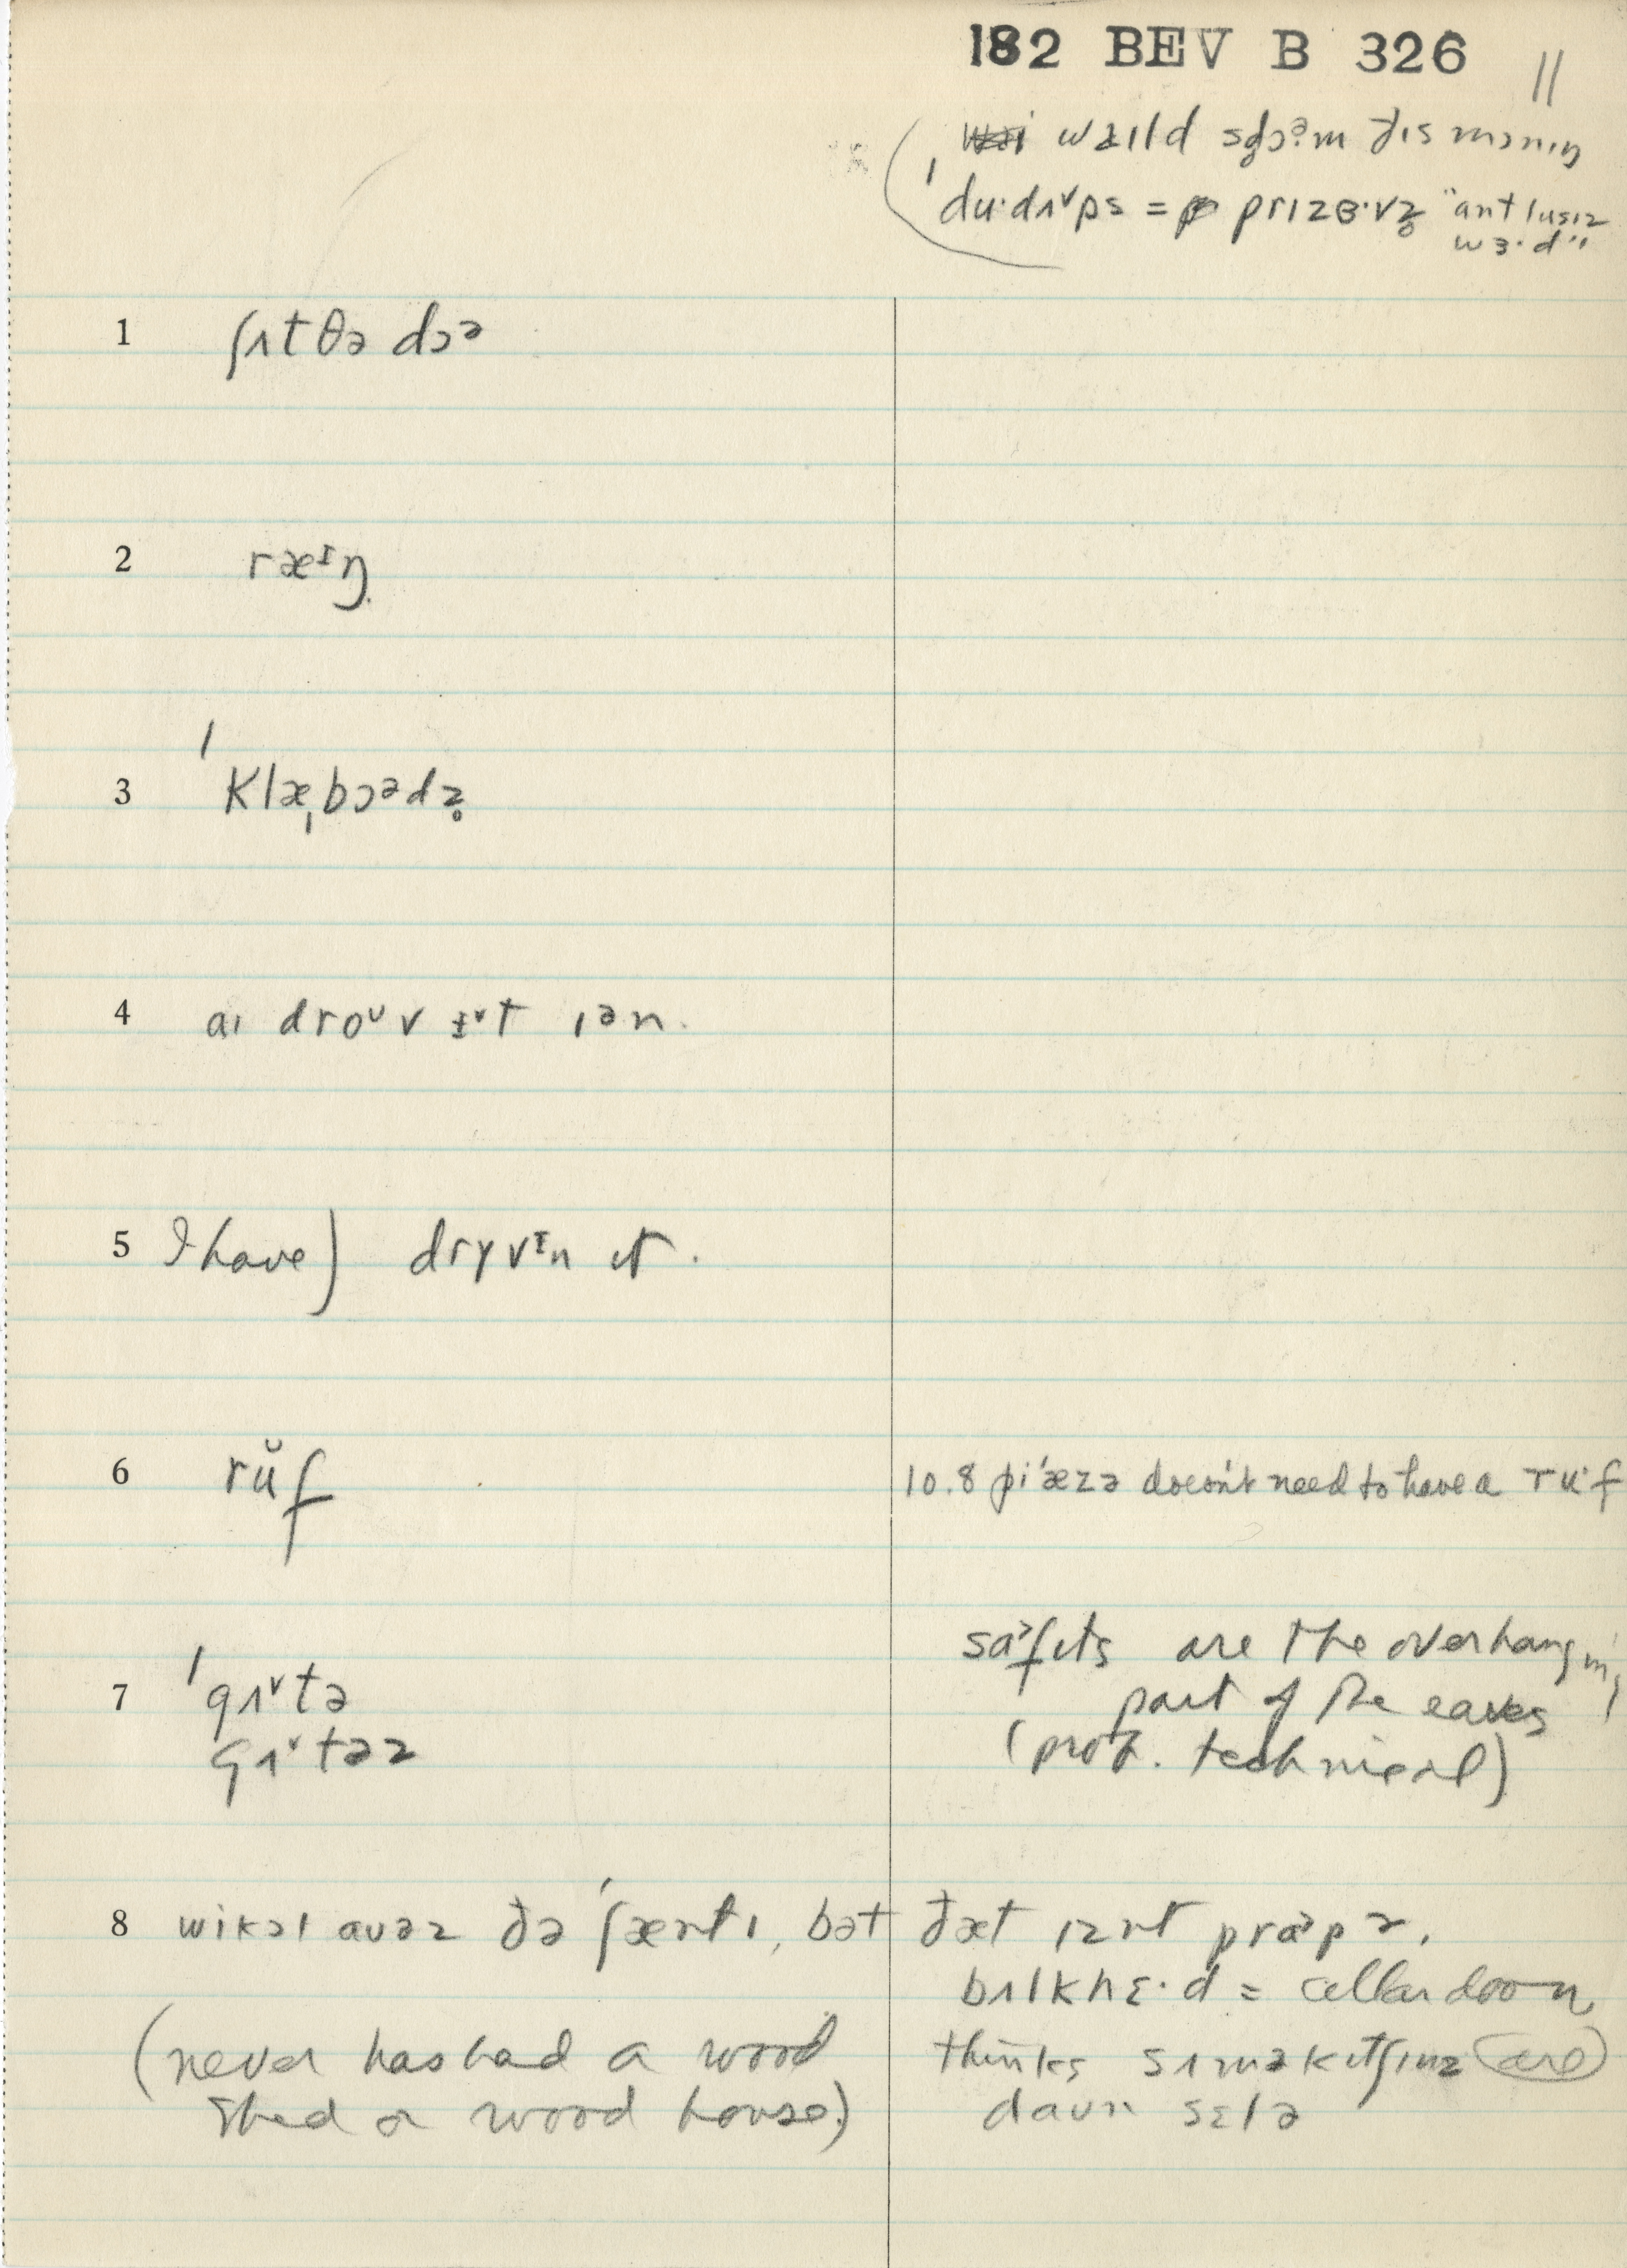 182 BEV B 326
11
waɪld sdɔᵊm ðɪs mɔnɪŋ
ˈdu·dʌᵛps = prɪzɜ·vz̥ "ant lusɪz
wɜ·d"
1 ʃʌt ðə dɔᵊ
2 ræᶦŋ
3 ˈklæˌbɔᵊdz̥
4 aɪ droᵘv ɨᵛt ɪən.
5 I have) drɣvᶦn ɪt.
6 rŭf
10.8 piˈæzə doesn't need to have a ru·f
7 ˈgʌᵛtə
gʌᵛtəz
saˀfɪts are the overhanging
part of the eaves
(prob. technical)
8 wikɔl auəz ðə ˈʃæntɪ, bət ðæt ɪznt praˀpə.
bʌlkhɛ·d = cellar door
(never has had a wood
shed or wood house)
thinks sʌməkɪtʃɪnz (are)
daun sɛlə